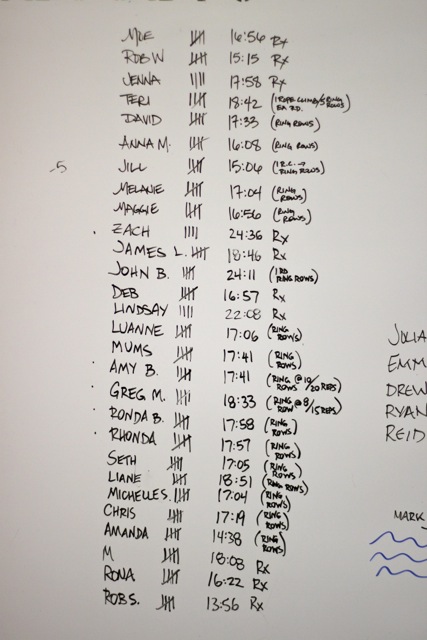 MOE 16:56 Rx
ROB W 15:15 Rx
JENNA 17:58 Rx
TERI 18:42 (1 ROPE CLIMB/5 RING ROWS EA RD.)
DAVID 17:33 (RING ROWS)
ANNA M. 16:08 (RING ROWS)
-5 JILL 15:06 (1 R.C. → RING ROWS)
MELANIE 17:04 (RING ROWS)
MAGGIE 16:56 (RING ROWS)
ZACH 24:36 Rx
JAMES L. 18:46 Rx
JOHN B. 24:11 (1 RD RING ROWS)
DEB 16:57 Rx
LINDSAY 22:08 Rx
LUANNE 17:06 (RING ROWS)
MUMS 17:41 (RING ROWS)
AMY B. 17:41 (RING @ 10/ ROWS /20 REPS)
GREG M. 18:33 (RING @ 8/ ROW /15 REPS)
RONDA B. 17:58 (RING ROWS)
RHONDA 17:57 (RING ROWS)
SETH 17:05 (RING ROWS)
LIANE 18:51 (RING ROWS)
MICHELLE S. 17:04 (RING ROWS)
CHRIS 17:19 (RING ROWS)
AMANDA 14:38 (RING ROWS)
M 18:08 Rx
RONA 16:22 Rx
ROB S. 13:56 Rx
JULIA
EMM
DREW
RYAN
REID
MARK